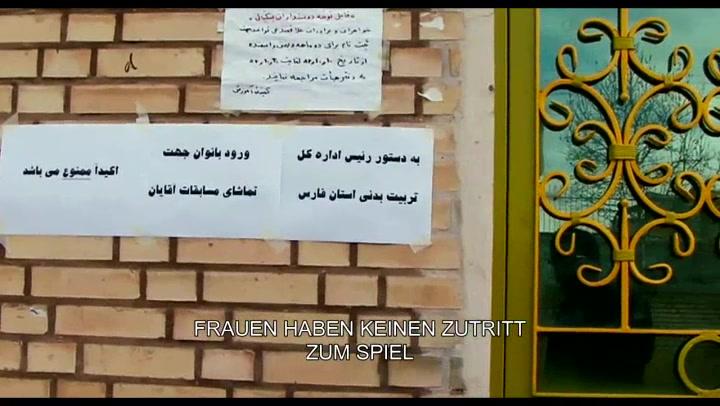 قابل توجه دوستداران بسکتبال
خواهران و برادران علاقمند می توانند جهت
ثبت نام
از تاریخ
به دفتر هیأت مراجعه نمایند.
کمیته آموزش
به دستور رئیس اداره کل
تربیت بدنی استان فارس
ورود بانوان جهت
تماشای مسابقات آقایان
اکیداً ممنوع می باشد
FRAUEN HABEN KEINEN ZUTRITT
ZUM SPIEL